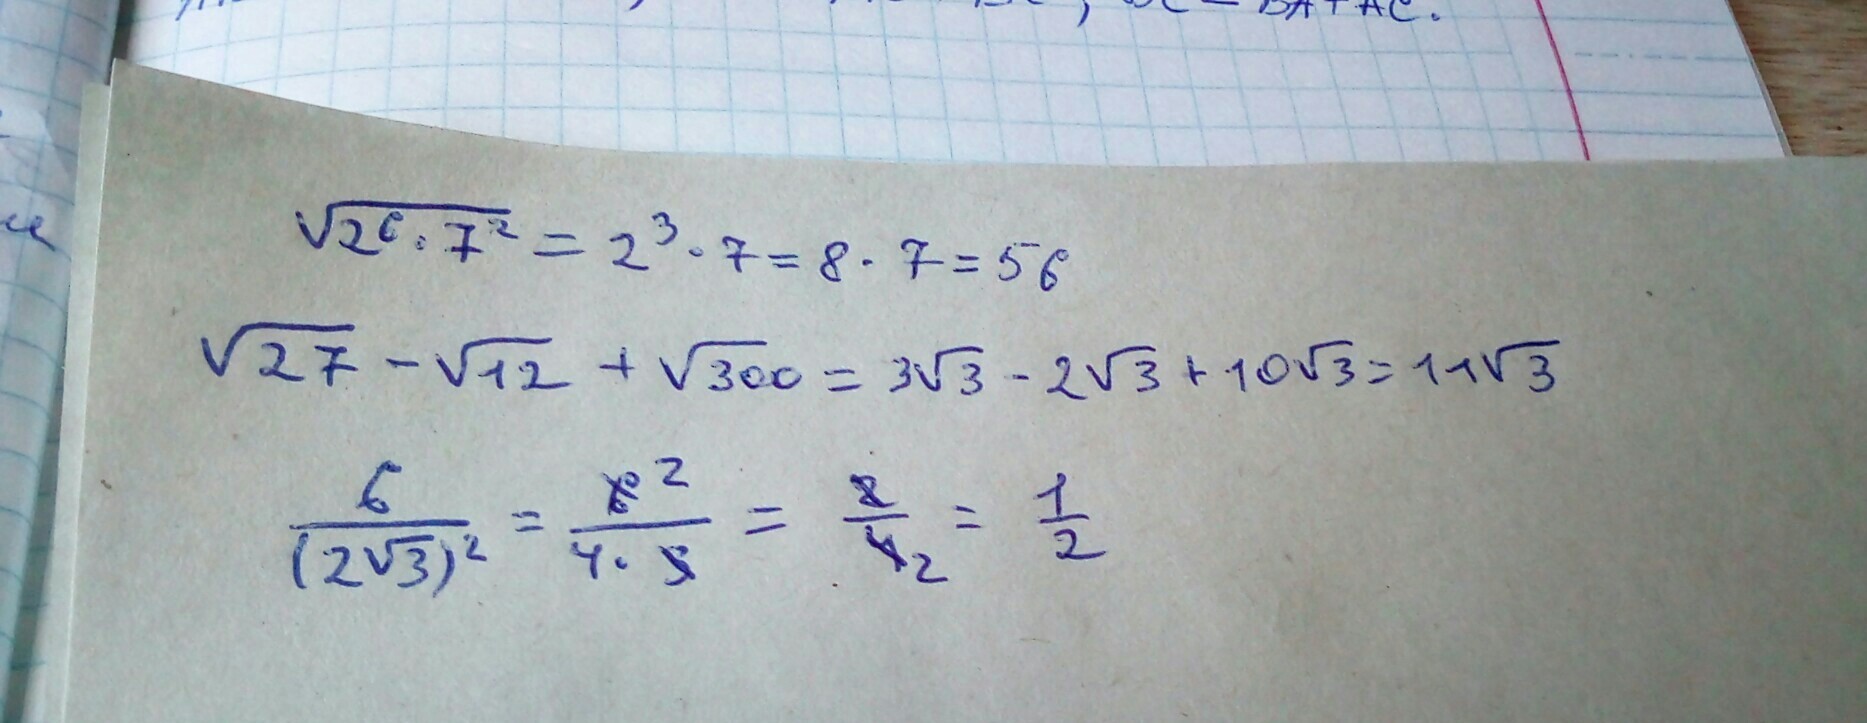 BA + AC.
√(2⁶ · 7²) = 2³ · 7 = 8 · 7 = 56
√27 - √12 + √300 = 3√3 - 2√3 + 10√3 = 11√3
6/(2√3)² = 6²/(4 · 3) = 2/4₂ = 1/2